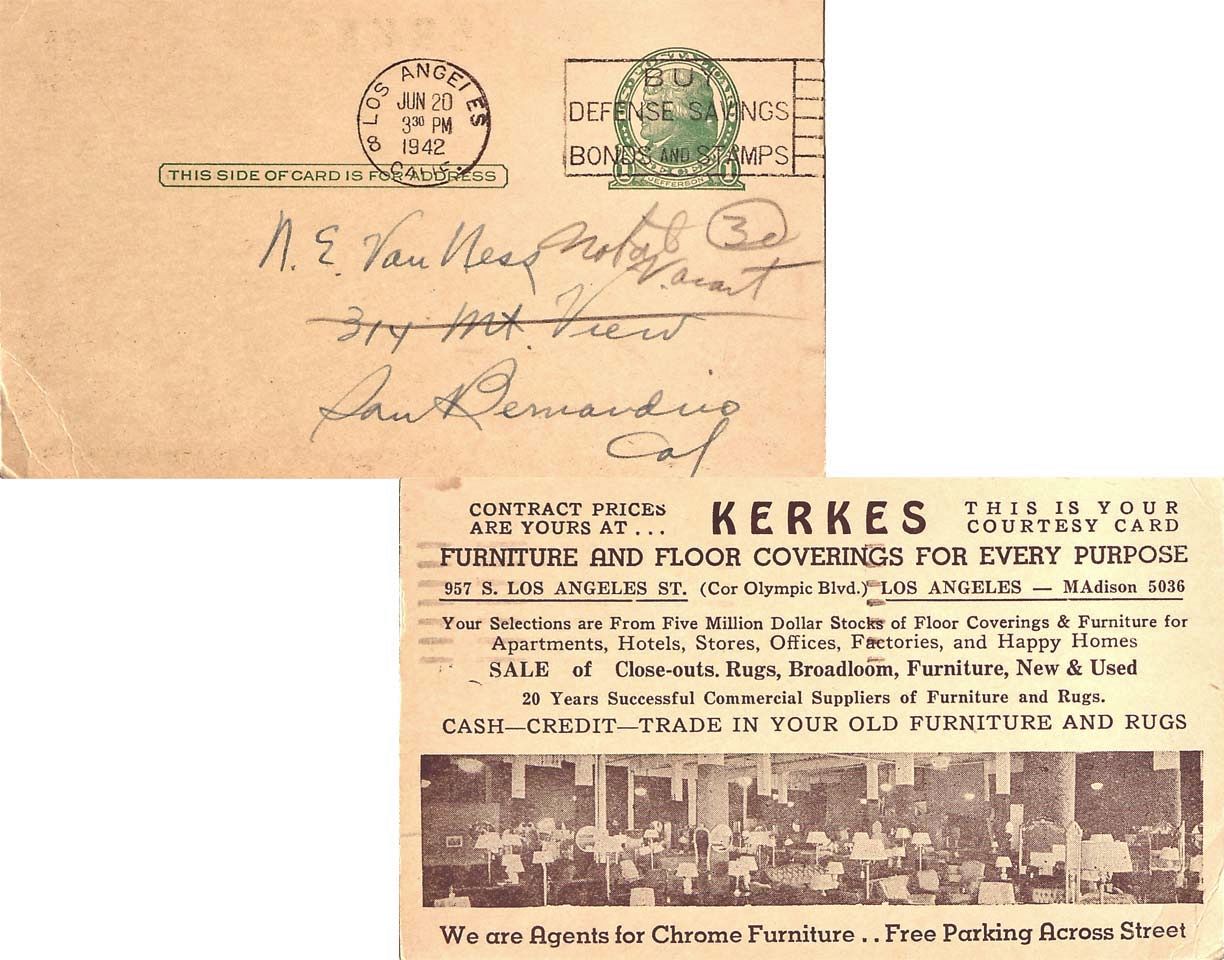 LOS ANGELES
8
JUN 20
3³⁰ PM
1942
CALIF.
BUY
DEFENSE SAVINGS
BONDS AND STAMPS
JEFFERSON
THIS SIDE OF CARD IS FOR ADDRESS
N. E. Van Ness
Vacant
314 Mt. View
San Bernardino
Cal
CONTRACT PRICES
ARE YOURS AT ...
KERKES
THIS IS YOUR
COURTESY CARD
FURNITURE AND FLOOR COVERINGS FOR EVERY PURPOSE
957 S. LOS ANGELES ST. (Cor Olympic Blvd.) LOS ANGELES — MAdison 5036
Your Selections are From Five Million Dollar Stocks of Floor Coverings & Furniture for
Apartments, Hotels, Stores, Offices, Factories, and Happy Homes
SALE of Close-outs. Rugs, Broadloom, Furniture, New & Used
20 Years Successful Commercial Suppliers of Furniture and Rugs.
CASH—CREDIT—TRADE IN YOUR OLD FURNITURE AND RUGS
We are Agents for Chrome Furniture .. Free Parking Across Street